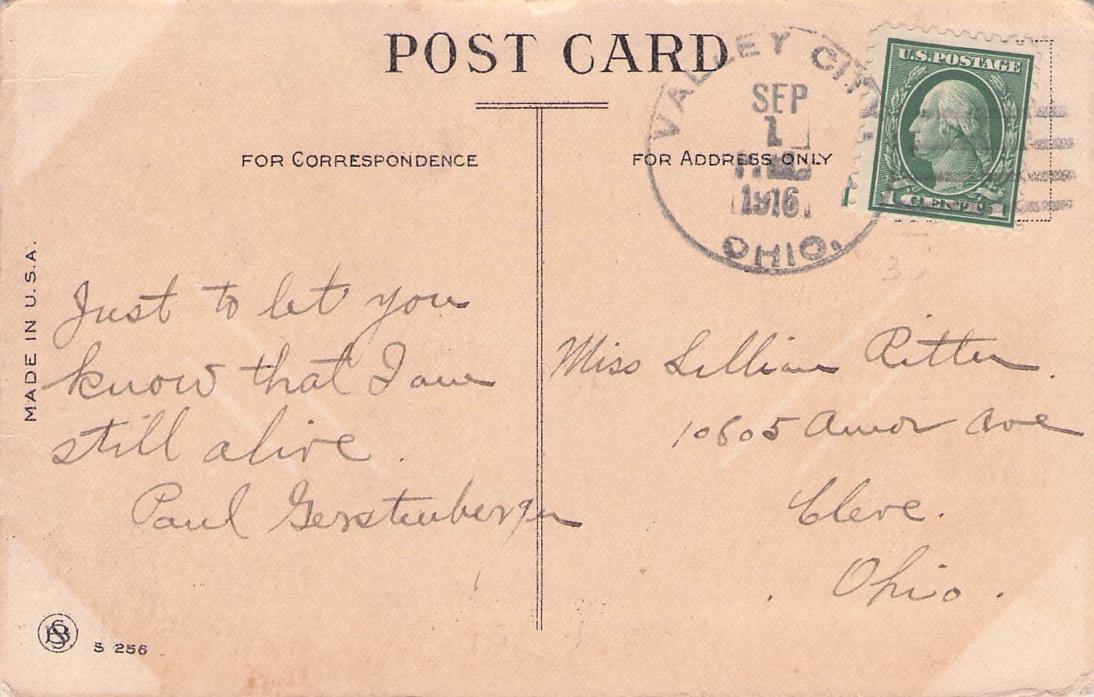 POST CARD
VALLEY CITY
SEP
1
1916
OHIO.
U.S. POSTAGE
1 CENT 1
FOR CORRESPONDENCE
FOR ADDRESS ONLY
MADE IN U.S.A.
Just to let you
know that I am
still alive.
Paul Gerstenberger
Miss Lillian Ritter.
10605 Amor Ave
Cleve.
Ohio.
S 256